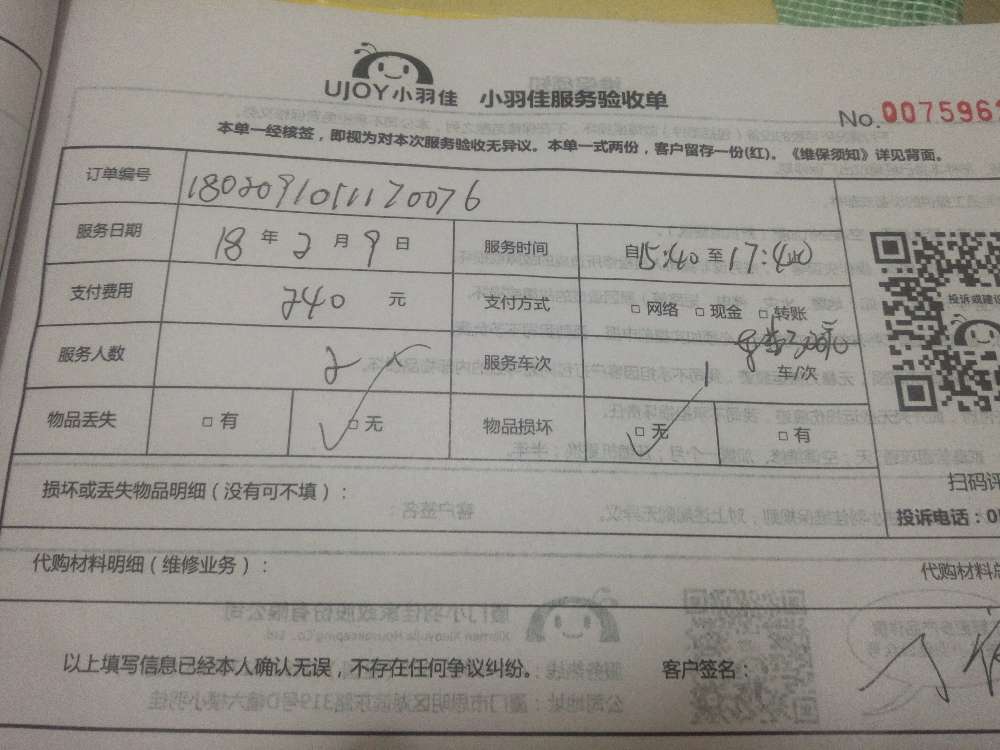 UJOY小羽佳 小羽佳服务验收单
No.0075961
本单一经核签，即视为对本次服务验收无异议。本单一式两份，客户留存一份(红)。《维保须知》详见背面。
订单编号 1802091051170076
服务日期 18 年 2 月 9 日 服务时间 自15:40 至 17:40
支付费用 240 元 支付方式 □ 网络 □ 现金 □ 转账
服务人数 2 服务车次 1 车/次
物品丢失 □ 有 □ 无 物品损坏 □ 无 □ 有
投诉或建议
扫码评
损坏或丢失物品明细（没有可不填）：
投诉电话：05
代购材料明细（维修业务）：
代购材料总
以上填写信息已经本人确认无误，不存在任何争议纠纷。 客户签名：